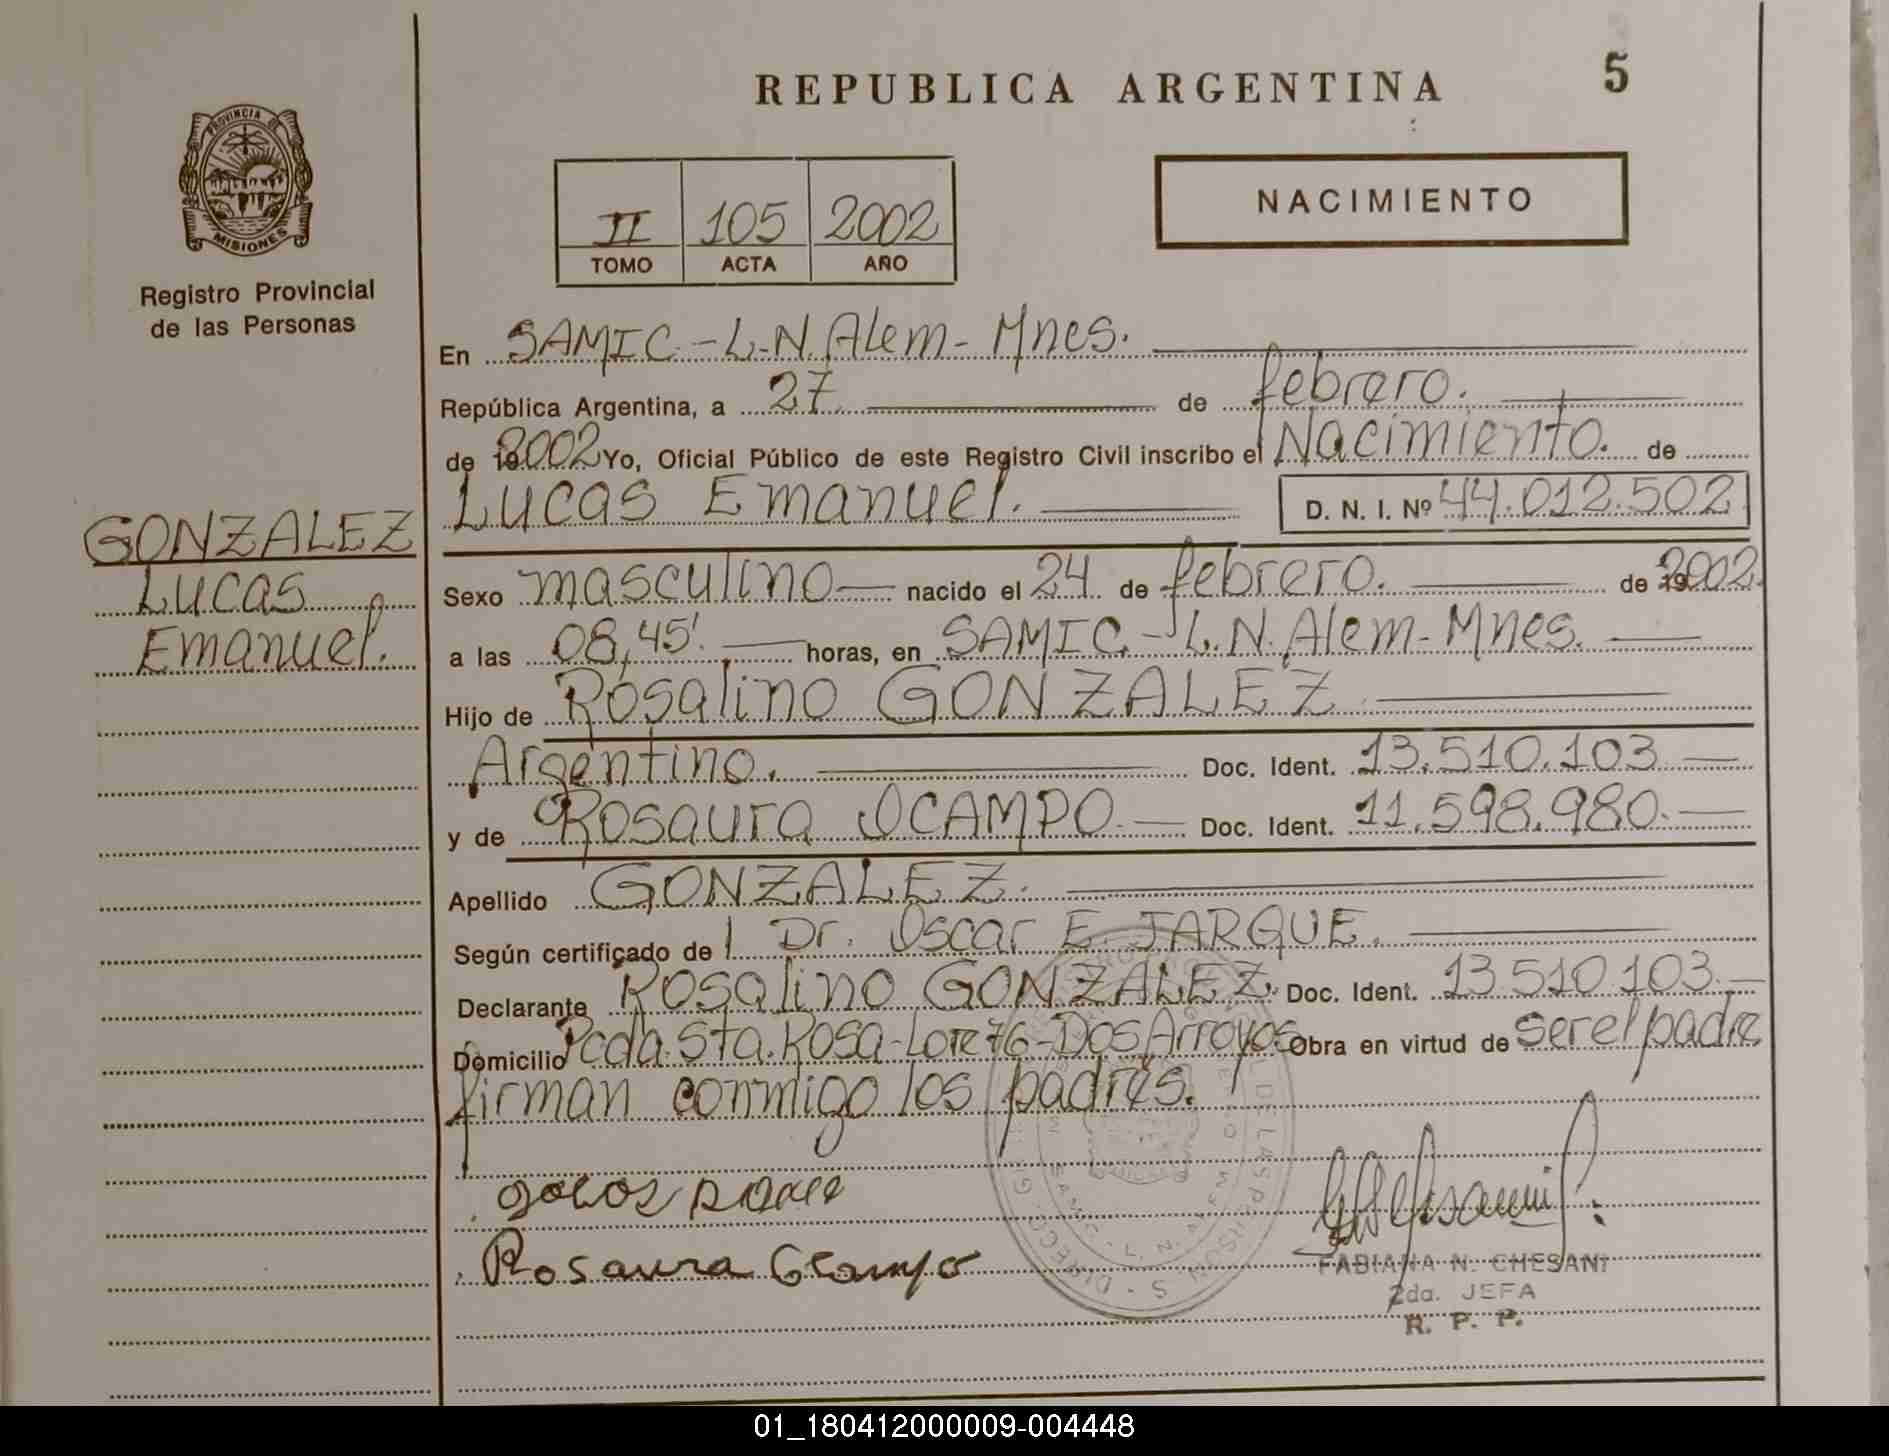 REPUBLICA ARGENTINA
5
PROVINCIA DE
MISIONES
Registro Provincial
de las Personas
II 105 2002
TOMO ACTA AÑO
NACIMIENTO
En SAMIC - L.N. Alem - Mnes.
República Argentina, a 27 de febrero.
de 2002 Yo, Oficial Público de este Registro Civil inscribo el Nacimiento. de
Lucas Emanuel. D. N. I. Nº 44.012.502
GONZALEZ
Lucas
Emanuel.
Sexo masculino nacido el 24 de febrero. de 2002.
a las 08,45'. horas, en SAMIC - L.N. Alem - Mnes.
Hijo de Rosalino GONZALEZ
Argentino. Doc. Ident. 13.510.103
y de Rosaura OCAMPO. Doc. Ident. 11.598.980.
Apellido GONZALEZ.
Según certificado del Dr. Oscar E. JARQUE.
Declarante Rosalino GONZALEZ. Doc. Ident. 13.510.103.
Domicilio Pcda. Sta. Rosa - Lote 76 - Dos Arroyos Obra en virtud de ser el padre
firman conmigo los padres.
Rosaura Ocampo
FABIANA N. CHESANI
2da. JEFA
R. P. P.
01_180412000009-004448